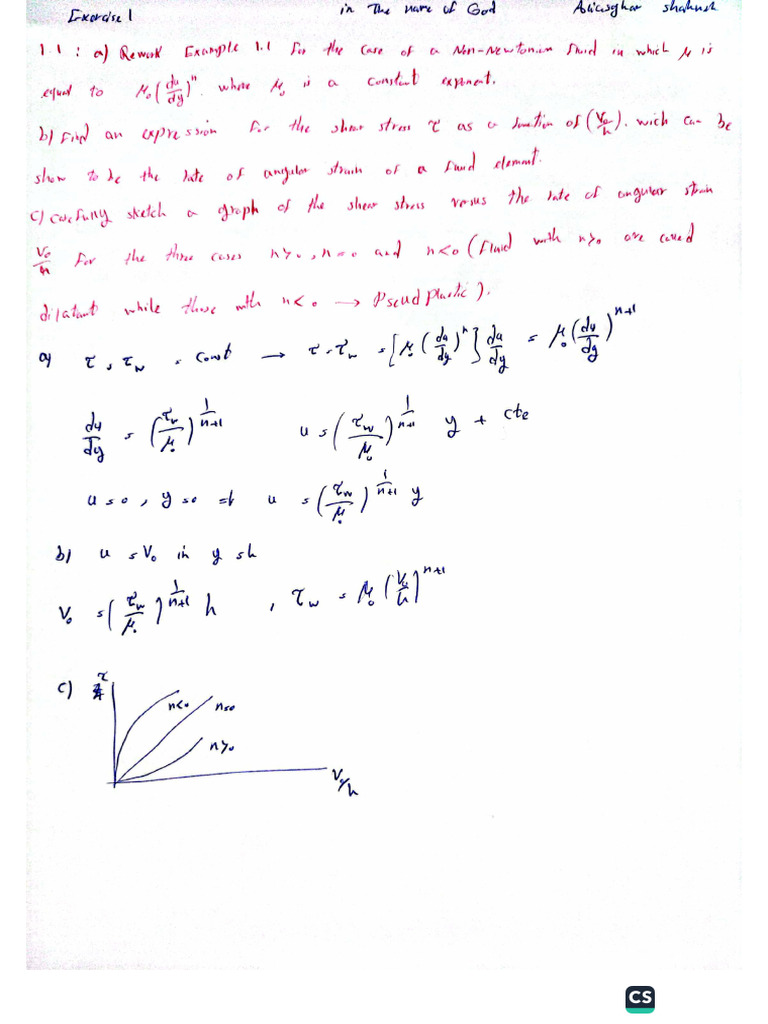 Exercise 1 in the name of God
1.1 : a) Rework Example 1.1 for the case of a Non-Newtonian fluid in which μ is
equal to μ₀(du/dy)ⁿ. where μ₀ is a constant exponent.
b) Find an expression for the shear stress τ as a function of (V₀/h). wich can be
show to be the rate of angular strain of a fluid element.
c) carefully sketch a graph of the shear stress versus the rate of angular strain
V₀/h for the three cases n>0, n=0 and n<0 (fluid with n>0 are called
dilatant while those with n<0 → Pseudplastic).
a) τ = τw = const → τ = τw = [μ₀(du/dy)ⁿ] du/dy = μ₀(du/dy)ⁿ⁺¹
du/dy = (τw/μ₀)^(1/(n+1)) u = (τw/μ₀)^(1/(n+1)) y + cte
u=0, y=0 ⇒ u = (τw/μ₀)^(1/(n+1)) y
b) u = V₀ in y = h
V₀ = (τw/μ₀)^(1/(n+1)) h , τw = μ₀(V₀/h)ⁿ⁺¹
c) τ
n<0 n=0
n>0
V₀/h
CS